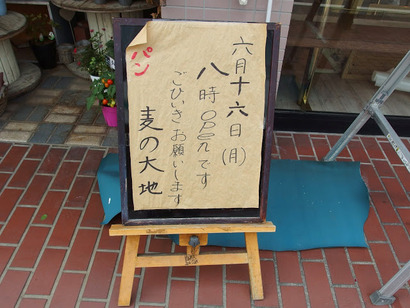 六月十六日(月)
八時openです
ごひいきお願いします
パン
麦の大地